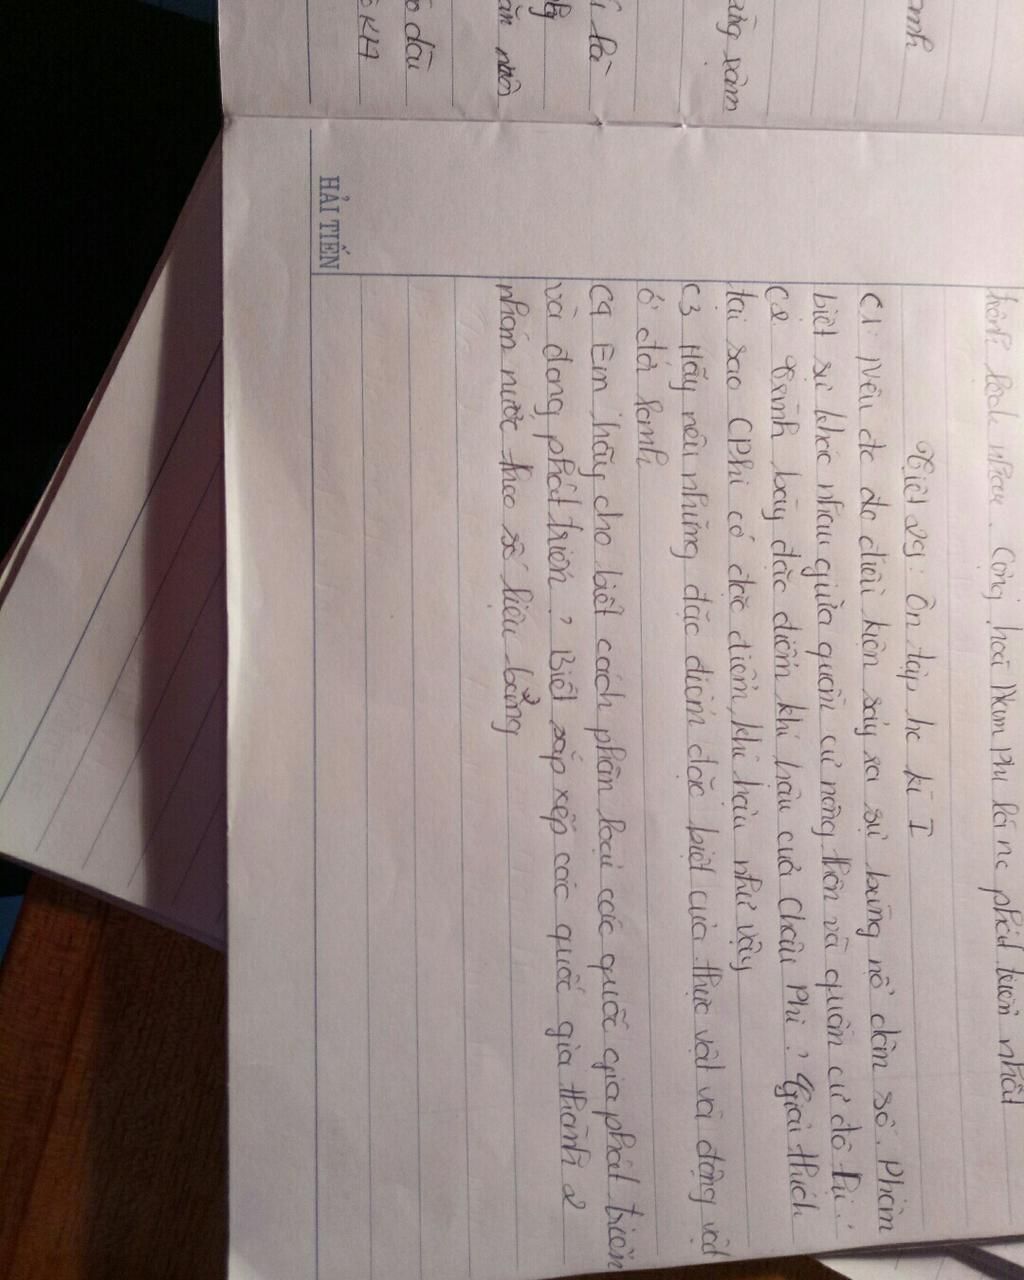 hành sook nhau. Cộng hoà Nam Phi là nc phát triển nhất
Tiết 29: Ôn tập hc kì I
C1: Nêu đc đc điều kiện xảy ra sự bùng nổ dân số. Phân
biệt sự khác nhau giữa quần cư nông thôn và quần cư đô thị.
C2. Trình bày đặc điểm khí hậu của châu Phi? Giải thích
tại sao CPhi có đặc điểm khí hậu như vậy
C3 Hãy nêu những đặc điểm đặc biệt của thực vật và động vật
ở đới lạnh
C4 Em hãy cho biết cách phân loại các quốc gia phát triển
và đang phát triển? Biết sắp xếp các quốc gia thành 2
nhóm nước theo số liệu bảng
HẢI TIẾN
ảnh
xàm
là
ăn năn
dầu
KHA